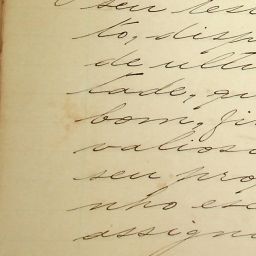 seu tes
to, disp
de ultu
tade, qu
bom, fir
valioso
seu prop
nho esc
assigna